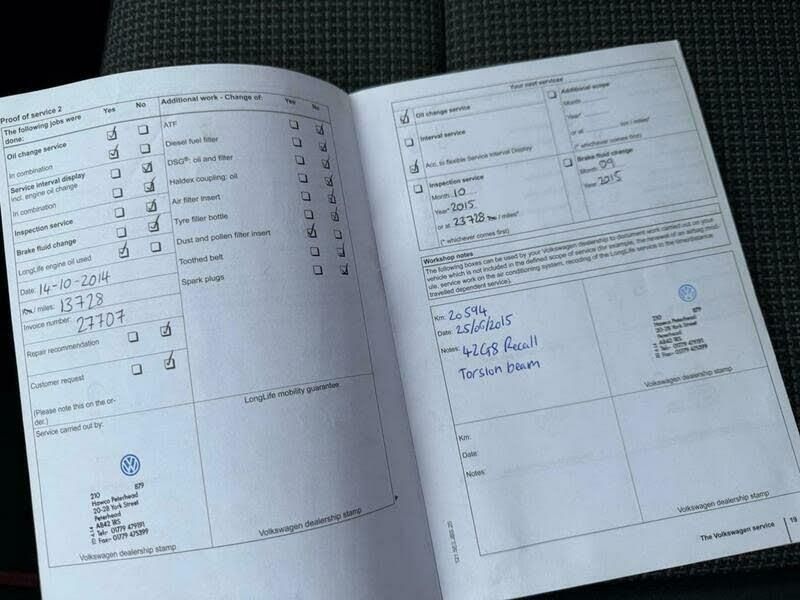 Proof of service 2
Yes
No
The following jobs were
done:
Oil change service
In combination
Service interval display
incl. engine oil change
In combination
Inspection service
Brake fluid change
LongLife engine oil used
Date: 14-10-2014
Km / miles: 13728
Invoice number: 27707
Repair recommendation
Customer request
(Please note this on the or-
der.)
Service carried out by:
210 879
Hawco Peterhead
20-28 York Street
Peterhead
AB42 1RS
Tel:- 01779 479191
Fax:- 01779 475399
Volkswagen dealership stamp
Additional work - Change of:
Yes
No
ATF
Diesel fuel filter
DSG®: oil and filter
Haldex coupling: oil
Air filter insert
Tyre filler bottle
Dust and pollen filter insert
Toothed belt
Spark plugs
LongLife mobility guarantee
Volkswagen dealership stamp
Your next services
Oil change service
Interval service
Acc. to flexible Service Interval Display
Inspection service
Month 10
Year* 2015
or at 23728 Km / miles*
(* whichever comes first)
Additional scope
Month
Year*
or at km / miles*
(* whichever comes first)
Brake fluid change
Month 09
Year 2015
Workshop notes
The following boxes can be used by your Volkswagen dealership to document work carried out on your
vehicle which is not included in the defined scope of service (for example, the renewal of an airbag mod-
ule, service work on the air conditioning system, recoding of the LongLife service to the time/distance
travelled dependent service).
Km: 20594
Date: 25/06/2015
Notes: 42G8 Recall
Torsion beam
210 879
Hawco Peterhead
20-28 York Street
Peterhead
AB42 1RS
Tel:- 01779 479191
Fax:- 01779 475399
Volkswagen dealership stamp
Km:
Date:
Notes:
Volkswagen dealership stamp
The Volkswagen service
19